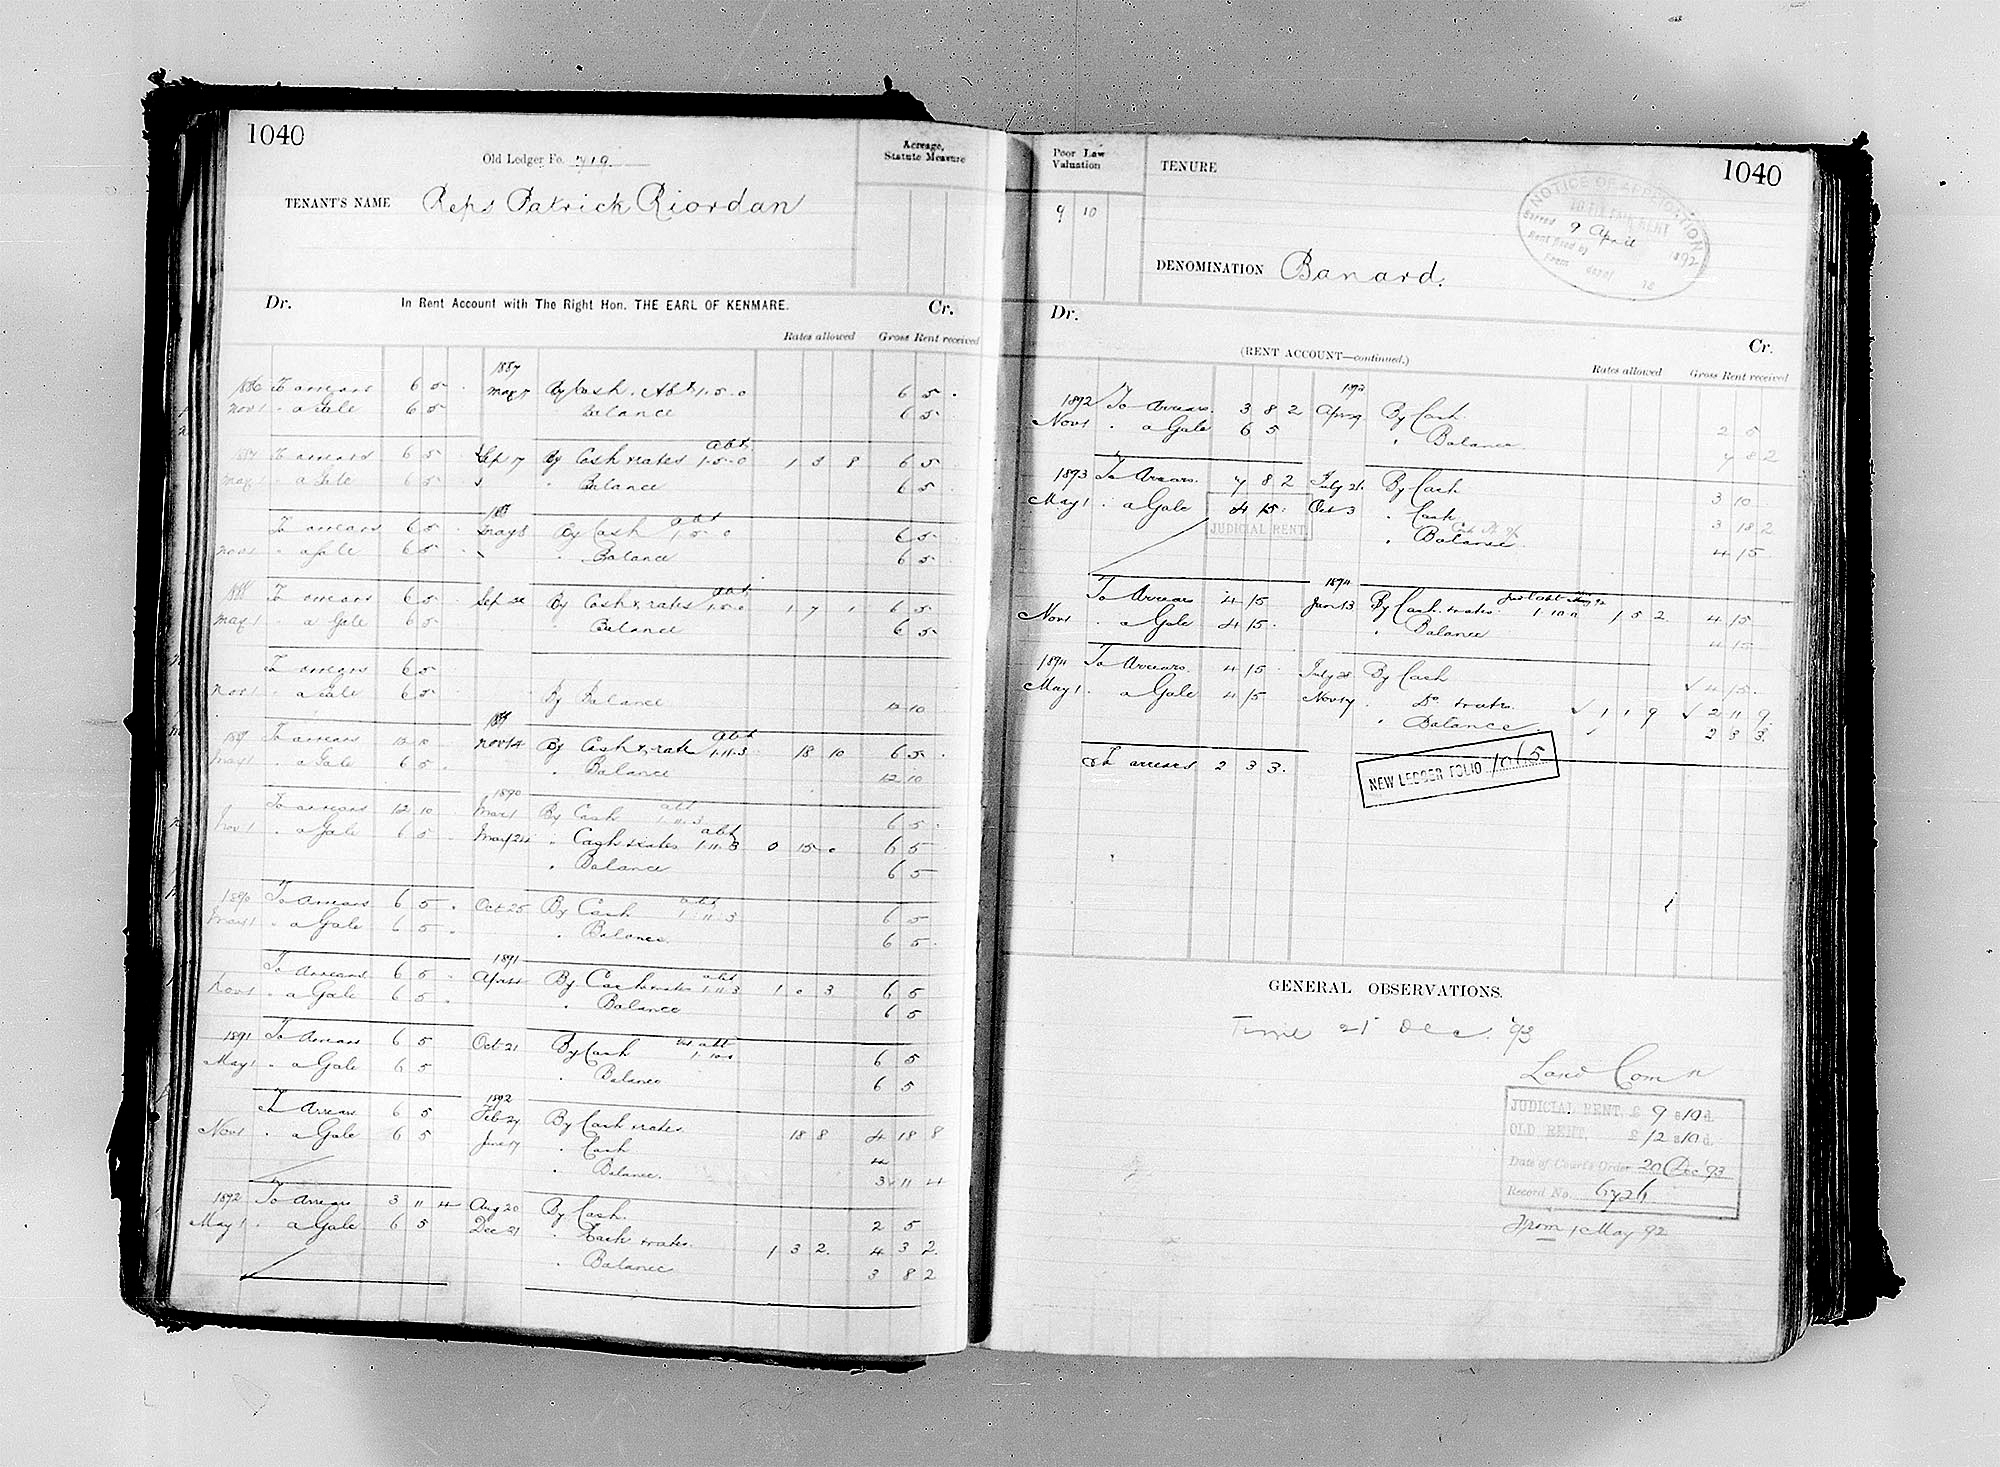 1040
Old Ledger Fo. 719
Acreage, Statute Measure
TENANT'S NAME Reps Patrick Riordan
Dr. In Rent Account with The Right Hon. THE EARL OF KENMARE. Cr.
Rates allowed Gross Rent received
1887
1886 To arrears 6 5 May 7 By Cash. Abt 1.5.0 6 5
Nov 1 " a Gale 6 5 Balance 6 5
1887 To arrears 6 5 Sep 7 By Cash & rates abt 1.5.0 1 3 8 6 5
May 1 " a Gale 6 5 " Balance 6 5
To arrears 6 5 May 8 By Cash abt 1.5.0 6 5
Nov 1 " a Gale 6 5 " Balance 6 5
1888 To arrears 6 5 Sep By Cash & rates abt 1.5.0 1 7 1 6 5
May 1 " a Gale 6 5 Balance 6 5
To arrears 6 5
Nov 1 " a Gale 6 5 By Balance 12 10
1889
1889 To arrears 12 10 Nov 14 By Cash & rate abt 1.11.3 18 10 6 5
May 1 " a Gale 6 5 " Balance 12 10
1890
To arrears 12 10 Mar 1 By Cash abt 1.11.3 6 5
Nov 1 " a Gale 6 5 May 24 " Cash & rates abt 1.11.3 0 15 0 6 5
" Balance 6 5
1890 To Arrears 6 5 Oct 25 By Cash abt 1.11.3 6 5
May 1 " a Gale 6 5 " Balance 6 5
1891
To Arrears 6 5 Apr By Cash & rates abt 1.11.3 1 0 3 6 5
Nov 1 " a Gale 6 5 " Balance 6 5
1891 To Arrears 6 5 Oct 21 By Cash abt 1.10.0 6 5
May 1 " a Gale 6 5 " Balance 6 5
1892
To Arrears 6 5 Feb 27 By Cash & rates 18 8 4 18 8
Nov 1 " a Gale 6 5 June 17 " Cash 4
" Balance 3 11 4
1892 To Arrears 3 11 4 Aug 20 By Cash 2 5
May 1 " a Gale 6 5 Dec 21 " Cash & rates 1 3 2 4 3 2
" Balance 3 8 2
Poor Law Valuation
TENURE
1040
9 10
NOTICE OF APPLICATION
TO FIX FAIR RENT
Served 9 April 1892
Rent fixed by
From
DENOMINATION Banard.
Dr. (RENT ACCOUNT—continued.) Cr.
Rates allowed Gross Rent received
1892 To Arrears 3 8 2 Apr By Cash 2 5
Nov 1 " a Gale 6 5 " Balance 7 8 2
1893 To Arrears 7 8 2 July 21 By Cash 3 10
May 1 " a Gale 4 15 Oct 3 " Cash 3 18 2
JUDICIAL RENT " Balance 4 15
1894
To Arrears 4 15 Jan 13 By Cash & rates 1.10.0 1 5 2 4 15
Nov 1 " a Gale 4 15 " Balance 4 15
1894 To Arrears 4 15 July 28 By Cash 4 15
May 1 " a Gale 4 15 Nov 17 " Do & rates 1 1 9 2 11 9
" Balance 2 3 3
To arrears 2 3 3
NEW LEDGER FOLIO 1065
GENERAL OBSERVATIONS.
Time 21 Dec. '93
Land Comn
JUDICIAL RENT, £ 9 s 10 d.
OLD RENT, £ 12 s 10 d.
Date of Court's Order 20 Dec '93
Record No. 6726
From 1 May 92